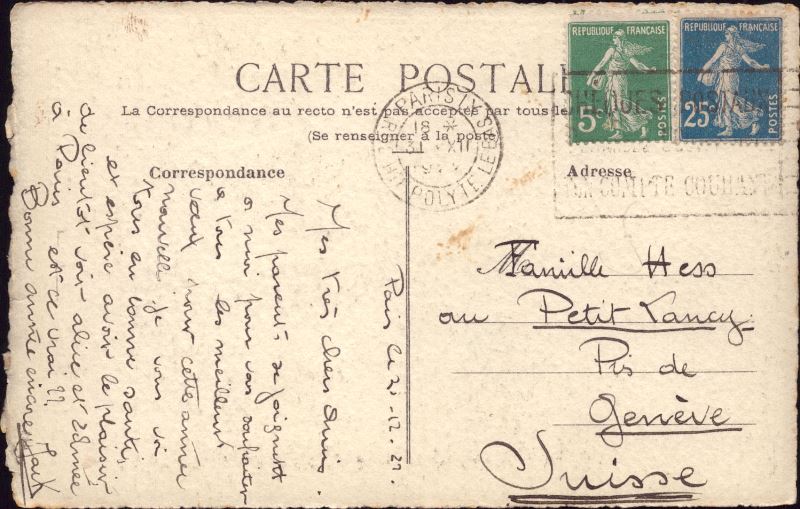 CARTE POSTALE
La Correspondance au recto n'est pas acceptée par tous le
(Se renseigner à la poste
Correspondance
Adresse
REPUBLIQUE FRANÇAISE
5c
POSTES
REPUBLIQUE FRANÇAISE
25c
POSTES
PARIS
18
31 XII
R. HIPPOLYTE LEBAS
Paris le 31-12-
Mes très chers Amis.
Mes parents se joignent
a moi pour vous souhaiter
a tous les meilleurs
vœux pour cette année
nouvelle Je vous
tous en bonne santé,
et espère avoir le plaisir
de bientôt voir alice et
a Paris est-ce vrai ??
Bonne année encore Jack
Famille Hess
au Petit Lancy
Prs de
Genève
Suisse